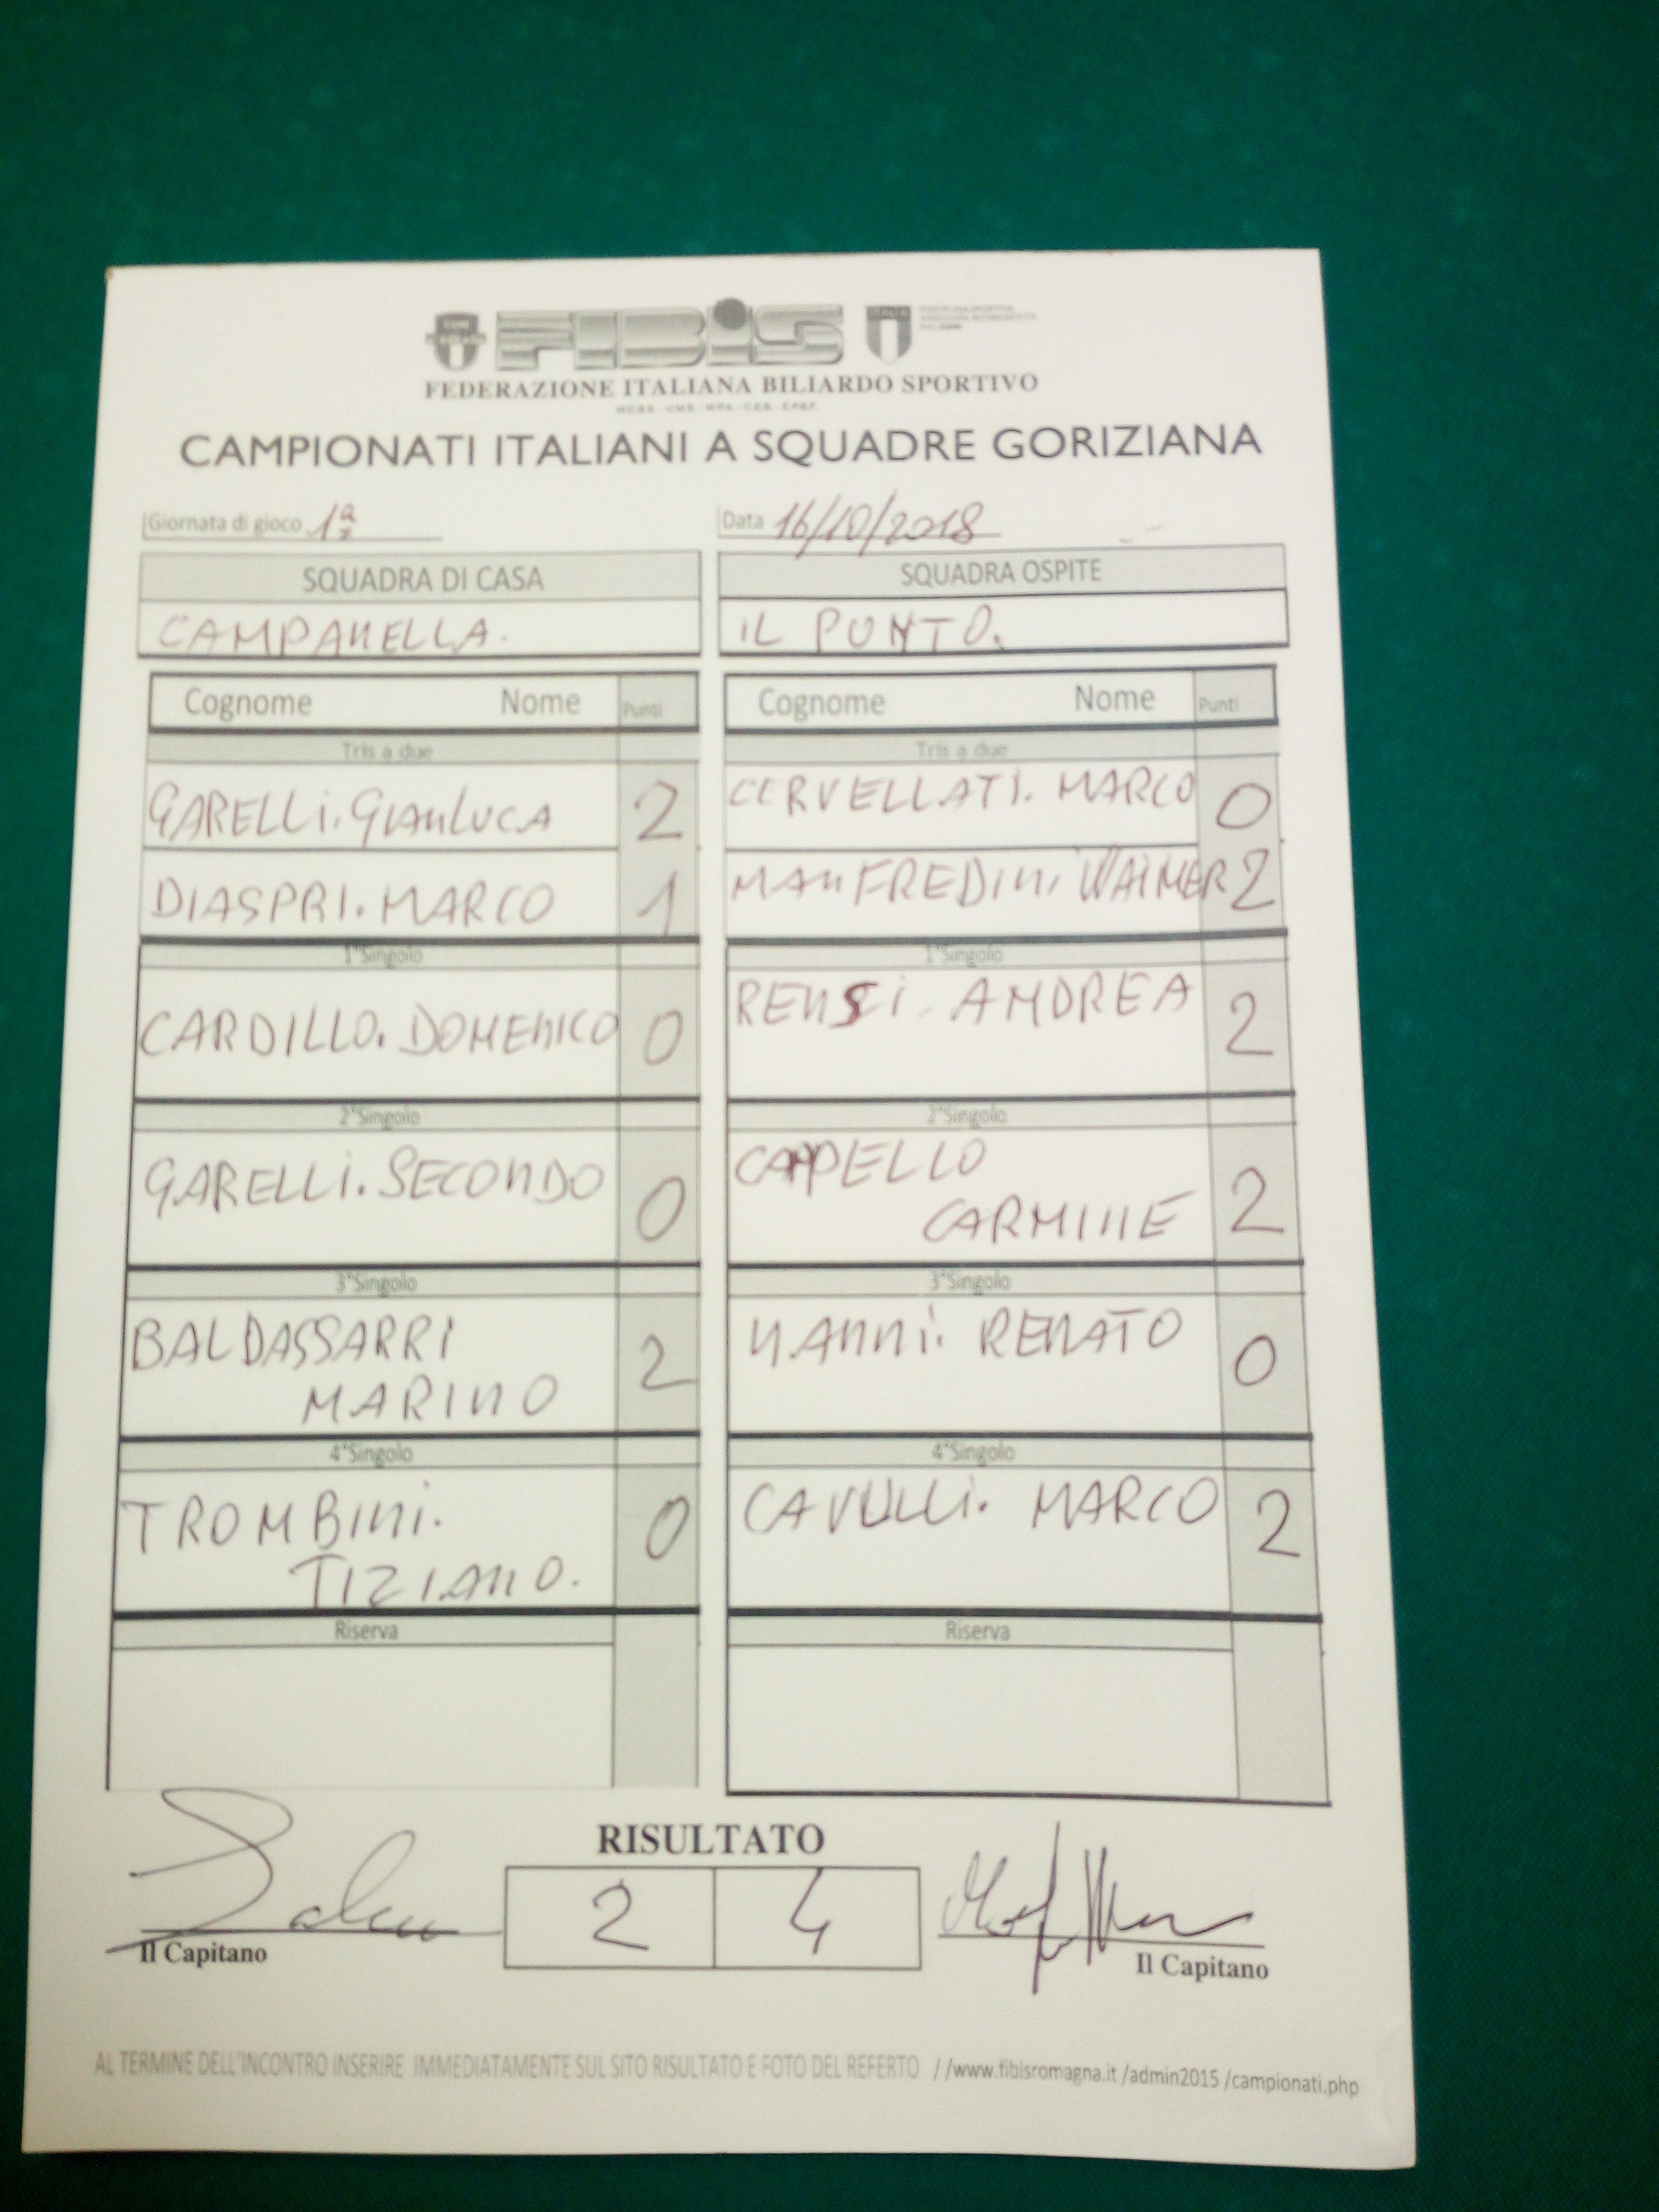 FIBiS
ITALIA
FEDERAZIONE ITALIANA BILIARDO SPORTIVO
CAMPIONATI ITALIANI A SQUADRE GORIZIANA
Giornata di gioco 1ª
Data 16/10/2018
SQUADRA DI CASA
SQUADRA OSPITE
CAMPANELLA.
IL PUNTO.
Cognome Nome Punti
Cognome Nome Punti
Tris a due
Tris a due
GARELLI. GIANLUCA 2
CERVELLATI. MARCO 0
DIASPRI. MARCO 1
MANFREDINI WAIMER 2
1°Singolo
1°Singolo
CARDILLO. DOMENICO 0
RENSI. ANDREA 2
2°Singolo
2°Singolo
GARELLI. SECONDO 0
CAPPELLO
CARMINE 2
3°Singolo
3°Singolo
BALDASSARRI
MARINO 2
NANNI. RENATO 0
4°Singolo
4°Singolo
TROMBINI.
TIZIANO. 0
CAVULLI. MARCO 2
Riserva
Riserva
RISULTATO
2 4
Il Capitano
Il Capitano
AL TERMINE DELL'INCONTRO INSERIRE IMMEDIATAMENTE SUL SITO RISULTATO E FOTO DEL REFERTO //www.fibisromagna.it /admin2015 /campionati.php